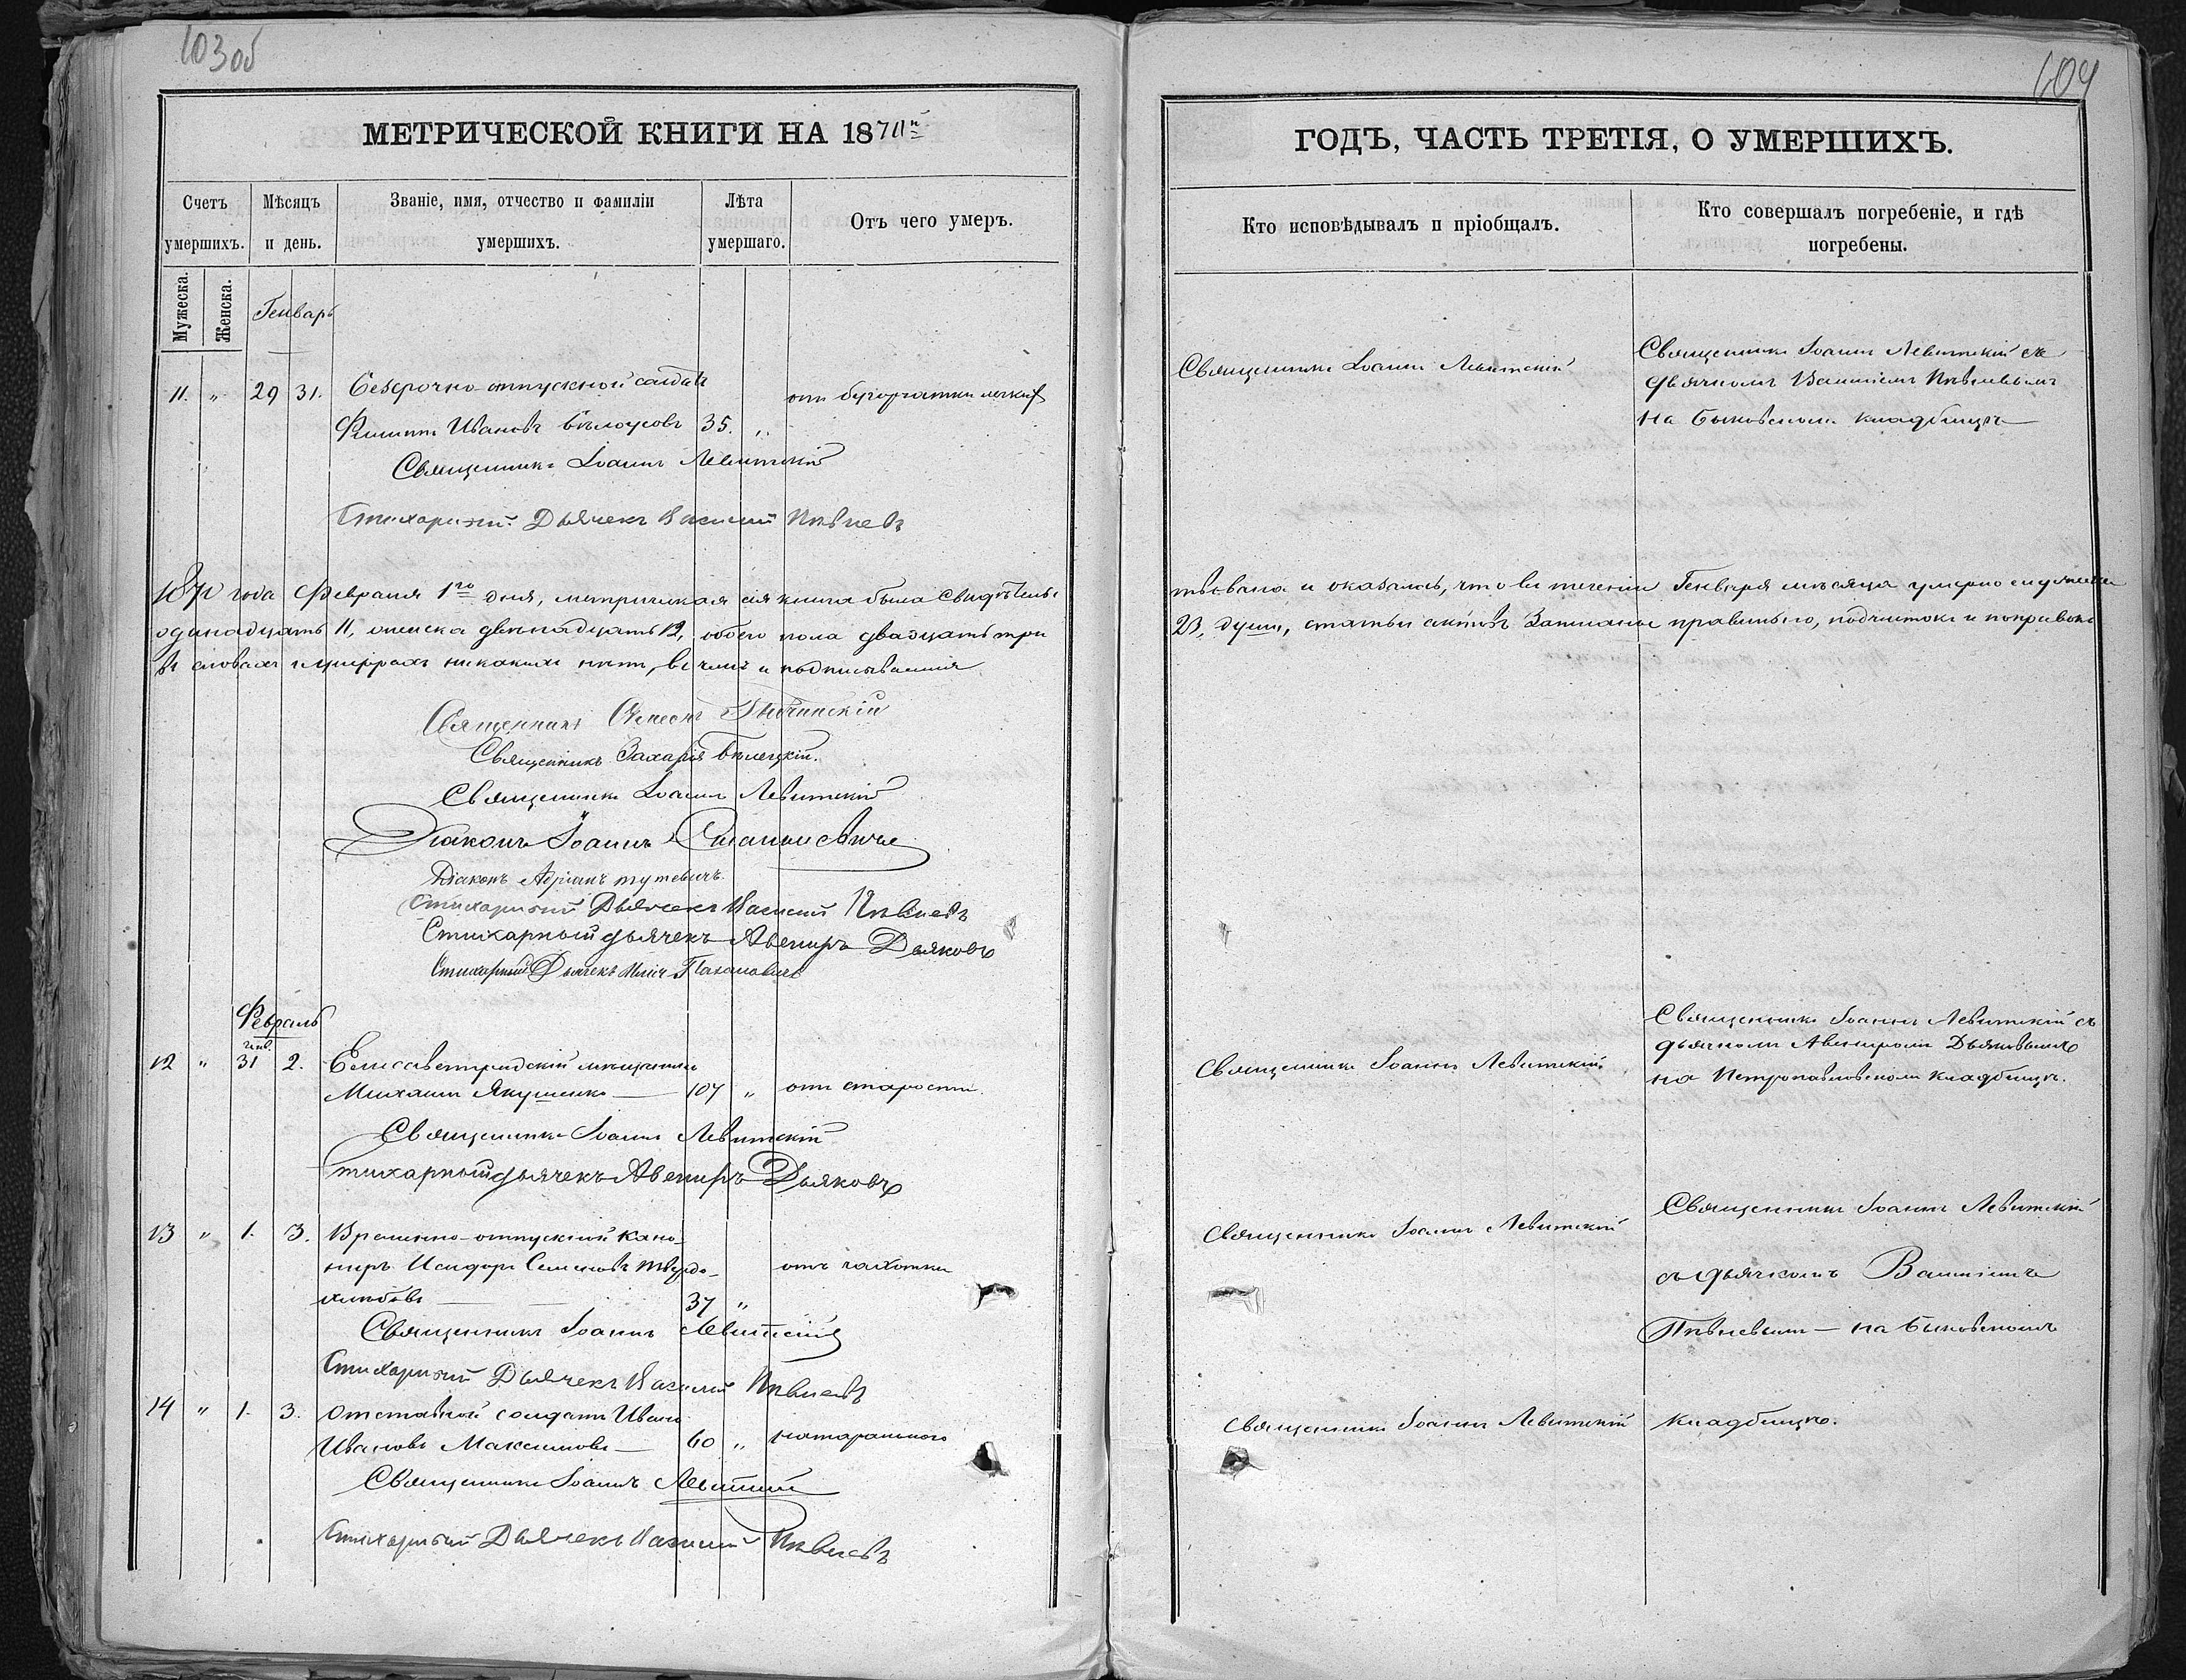 103об
МЕТРИЧЕСКОЙ КНИГИ НА 1870й
Счетъ умершихъ.
Мѣсяцъ и день.
Званіе, имя, отчество и фамиліи умершихъ.
Лѣта умершаго.
Отъ чего умеръ.
Мужеска.
Женска.
Генварь
11. " 29 31. Безсрочно-отпускной солдатъ
Филиппъ Ивановъ Бѣлоусовъ 35. " отъ бугорчатки легкихъ
Священникъ Іоаннъ Левитскій
Стихарный Дьячекъ Василий Пѣвневъ
1870 года Февраля 1го дня, метрическая сія книга была свидѣтель-
одинадцать 11, женска двѣнадцать 12, обоего пола двадцать три
въ словахъ и цыфрахъ никакихъ нѣтъ, въ чемъ и подписываемся
Священникъ Симеонъ
Священникъ Захарія Бѣлецкій.
Священникъ Іоаннъ Левитскій
Діаконъ Іоаннъ Станиславичъ
Діаконъ Адріанъ
Стихарный Дьячекъ Василий Пѣвневъ
Стихарный дьячекъ Авениръ Дьяковъ
Стихарный Дьячекъ
Февраль
12 " генв. 31 2. Елисаветградскій мѣщанинъ
Михаилъ Якушенко — 107 " отъ старости
Священникъ Іоаннъ Левитскій
Стихарный дьячекъ Авениръ Дьяковъ
13 " 1. 3. Временно-отпускной кано-
ниръ Исидоръ Семеновъ Твердо-
хлѣбовъ — 37 " отъ чахотки
Священникъ Іоаннъ Левитскій
Стихарный Дьячекъ Василий Пѣвневъ
14 " 1. 3. Отставной солдатъ Иванъ
Ивановъ Максимовъ — 60 " натарального
Священникъ Іоаннъ Левитскій
Стихарный Дьячекъ Василий Пѣвневъ
104
ГОДЪ, ЧАСТЬ ТРЕТІЯ, О УМЕРШИХЪ.
Кто исповѣдывалъ и пріобщалъ.
Кто совершалъ погребеніе, и гдѣ погребены.
Священникъ Іоаннъ Левитскій
Священникъ Іоаннъ Левитскій съ
дьячкомъ Василіемъ Пѣвневымъ
на Быковскомъ кладбищѣ
тсвована и оказалось, что въ теченіи Генваря мѣсяца умерло мужеска
23, души, статьи актовъ записаны правильно, подчистокъ и поправокъ
Священникъ Іоаннъ Левитскій
Священникъ Іоаннъ Левитскій съ
дьячкомъ Авениромъ Дьяковымъ
на Петропавловскомъ кладбищѣ.
Священникъ Іоаннъ Левитскій
Священникъ Іоаннъ Левитскій
съ дьячкомъ Василіемъ
Пѣвневымъ — на Быковскомъ
Священникъ Іоаннъ Левитскій
кладбищѣ.